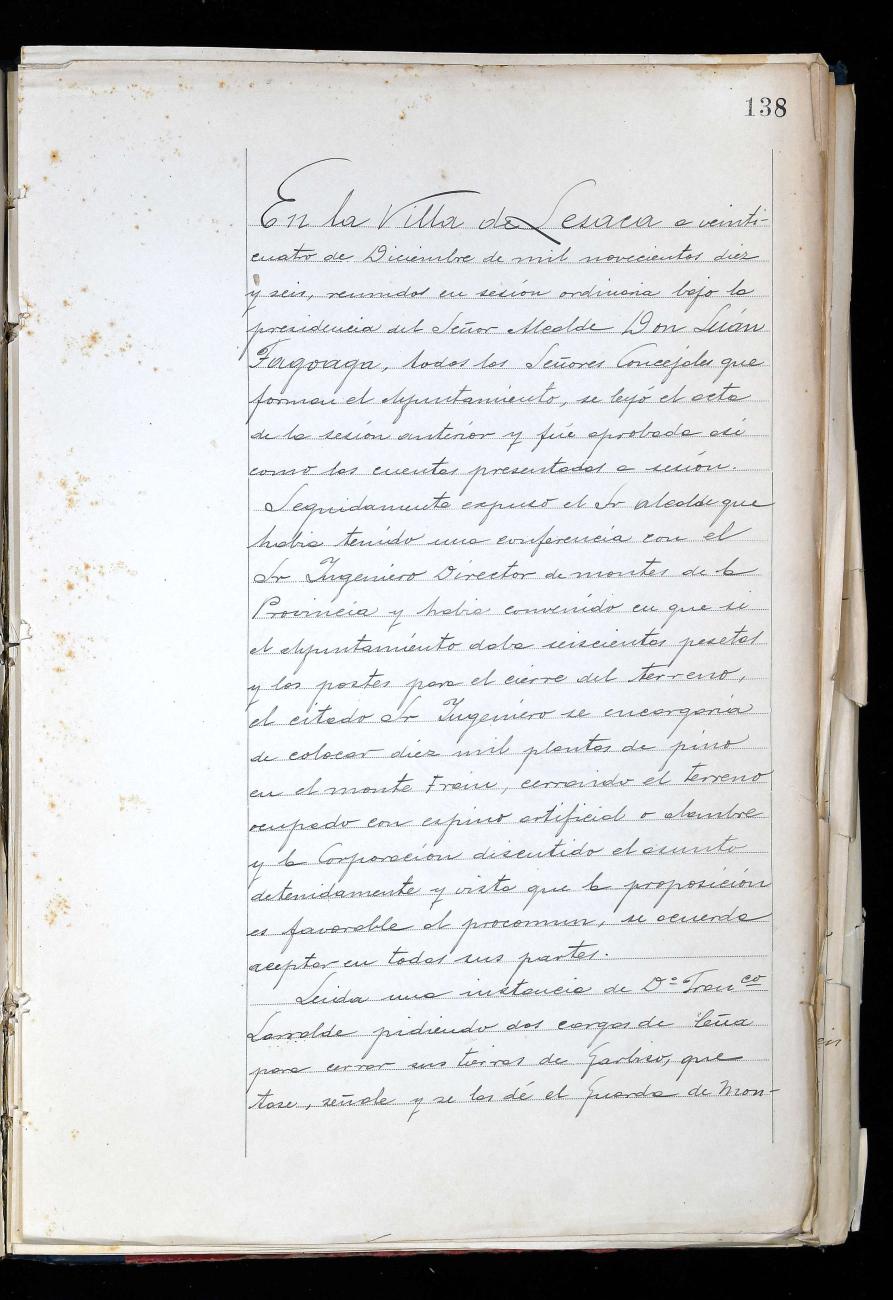 138
En la Villa de Lesaca a veinti-
cuatro de Diciembre de mil novecientos diez
y seis, reunidos en sesión ordinaria bajo la
presidencia del Señor Alcalde Don Luán
Fagoaga, todos los Señores Concejales que
forman el Ayuntamiento, se leyó el acta
de la sesión anterior y fué aprobada asi
como las cuentas presentadas a sesión.
Seguidamente expuso el Sr alcalde que
habia tenido una conferencia con el
Sr Ingeniero Director de montes de la
Provincia y habia convenido en que si
el Ayuntamiento daba seiscientas pesetas
y los postes para el cierre del terreno,
el citado Sr Ingeniero se encargaria
de colocar diez mil plantas de pino
en el monte Frain, cerrando el terreno
ocupado con espino artificial o alambre
y la Corporación discutido el asunto
detenidamente y visto que la proposición
es favorable al procomun, se acuerda
aceptar en todas sus partes.
Leida una instancia de Dº Franco
Larralde pidiendo dos cargas de leña
para cerrar sus tierras de que
tase, señale y se las dé el Guarda de Mon-